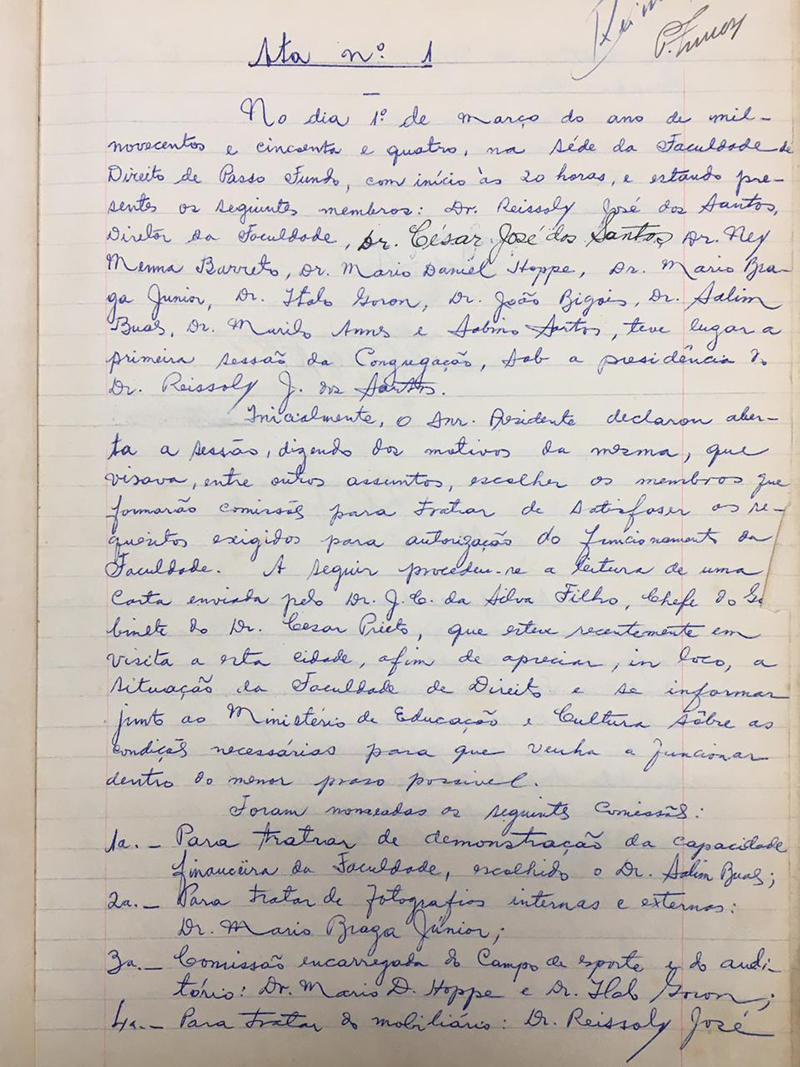 Ata nº 1
No dia 1º de Março do ano de mil-
novecentos e cincoenta e quatro, na séde da Faculdade de
Direito de Passo Fundo, com início às 20 horas, e estando pre-
sentes os seguintes membros: Dr. Reissoly José dos Santos,
Diretor da Faculdade, Dr. César José dos Santos, Dr. Ney
Menna Barreto, Dr. Mario Daniel Hoppe, Dr. Mario Bra-
ga Junior, Dr. Italo Goron, Dr. João Bigois, Dr. Salim
Buaes, Dr. Murilo Annes e Sabino Santos, teve lugar a
primeira sessão da Congregação, sob a presidência do
Dr. Reissoly J. dos Santos.
Inicialmente, o Snr. Presidente declarou aber-
ta a sessão, dizendo dos motivos da mesma, que
visava, entre outros assuntos, escolher os membros que
formarão comissões para tratar de satisfaser os re-
quesitos exigidos para autorização do funcionamento da
Faculdade. A seguir procedeu-se a leitura de uma
carta enviada pelo Dr. J. C. da Silva Filho, Chefe do Ga
binete do Dr. Cesar Prieto, que esteve recentemente em
visita a esta cidade, afim de apreciar, in loco, a
situação da Faculdade de Direito e se informar
junto ao Ministério de Educação e Cultura sôbre as
condições necessárias para que venha a funcionar
dentro do menor praso possivel.
Foram nomeadas as seguintes Comissões:
1a. - Para tratrar de demonstração da capacidade
financeira da Faculdade, escolhido o Dr. Salim Buaes;
2a. - Para tratar de Fotografias internas e externas:
Dr. Mario Braga Júnior;
3a. - Comissão encarregada do Campo de esporte e do audi-
tório: Dr. Mario D. Hoppe e Dr. Italo Goron;
4a. - Para tratar do mobiliário: Dr. Reissoly José